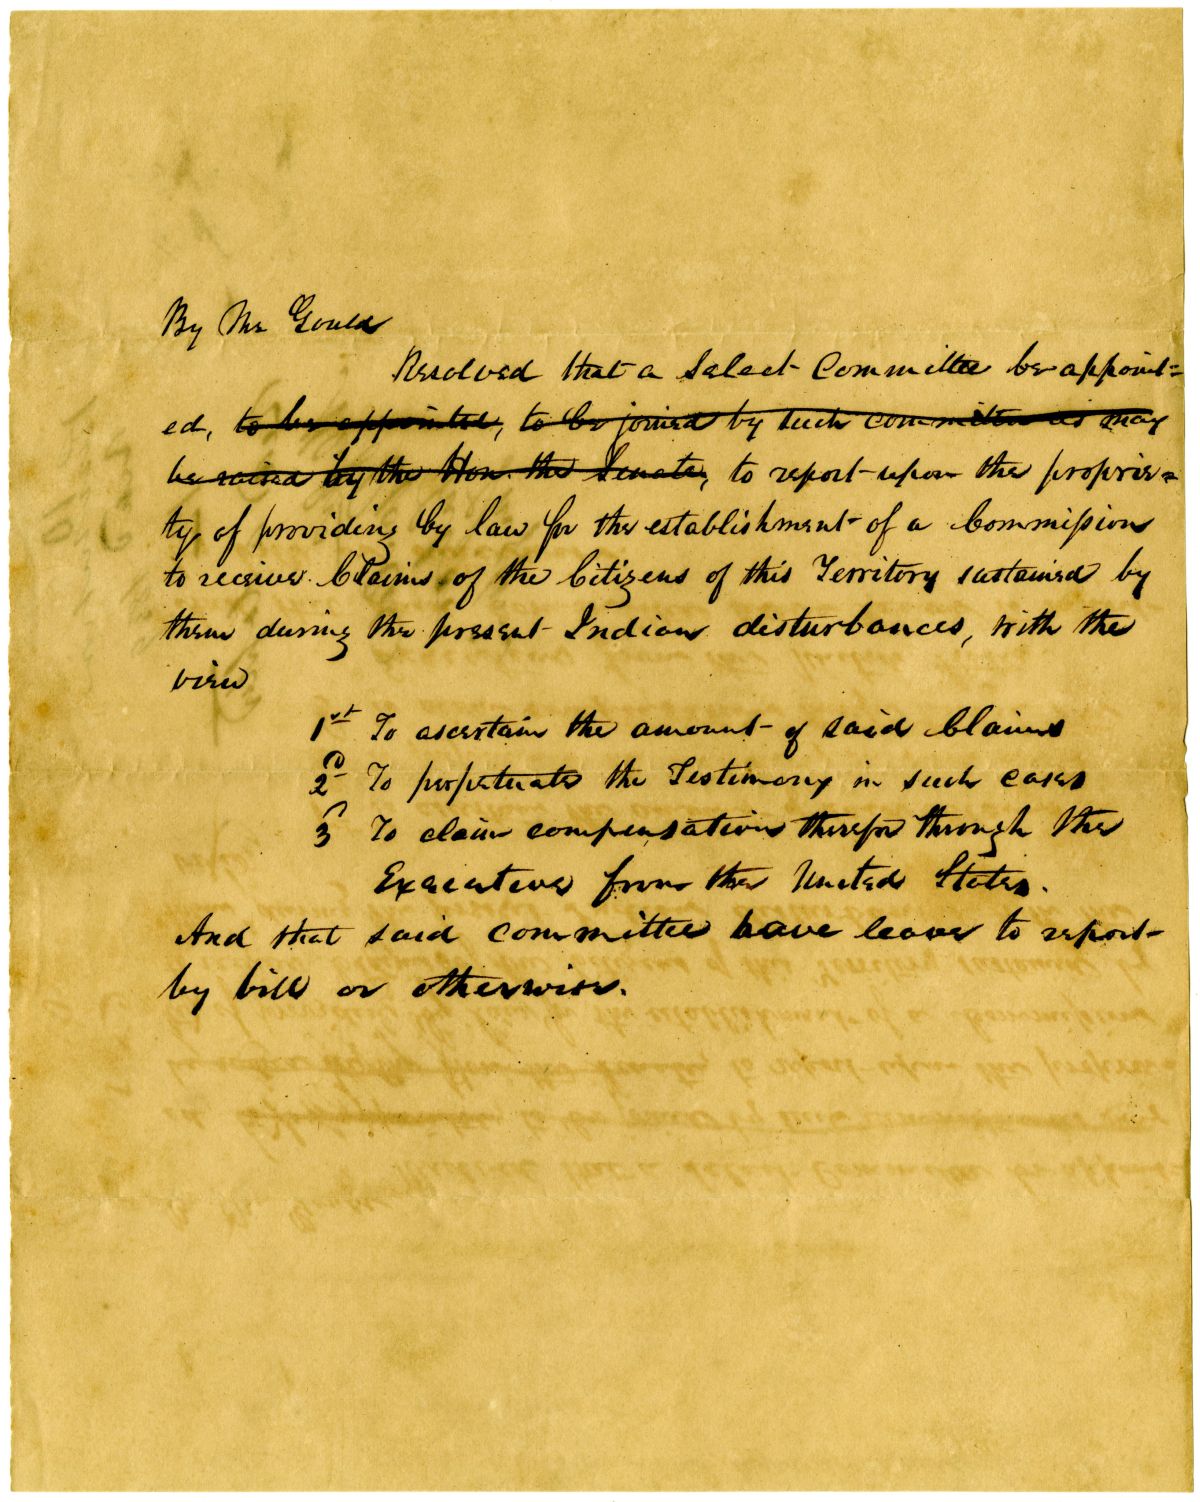 By Mr Gould
Resolved that a Select Committee be appoint=
ed, to be appointed, to be joined by such committee as may
be raised by the Hon. the Senate, to report upon the proprie=
ty of providing by law for the establishment of a Commission
to receive Claims of the Citizens of this Territory sustained by
them during the present Indian disturbances, with the
view
1st To ascertain the amount of said Claims
2d To perpetuate the Testimony in such cases
3d To claim compensation therefor through the
Executive from the United States.
And that said committee have leave to report
by bill or otherwise.